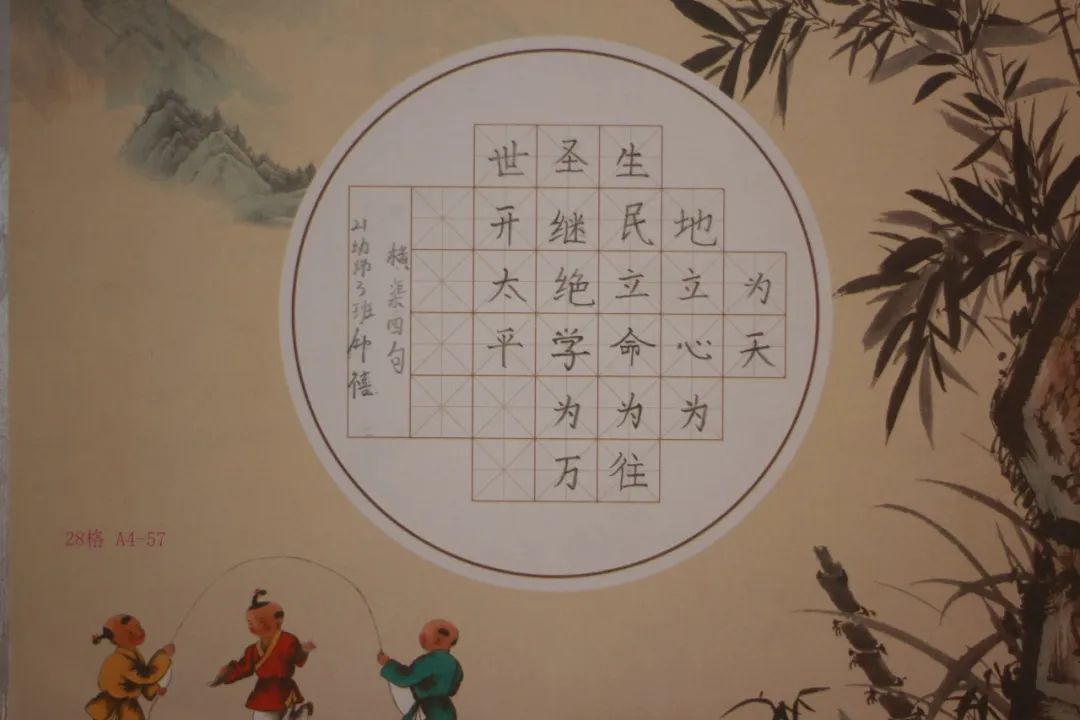 为天
地立心为
生民立命为往
圣继绝学为万
世开太平
横渠四句
21幼师3班帅禧
28格 A4-57